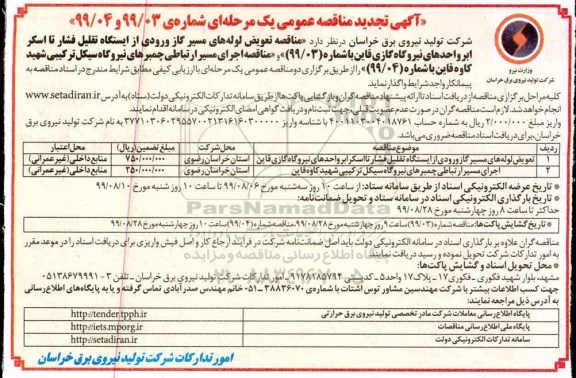 «آگهی تجدید مناقصه عمومی یک مرحله‌ای شماره‌ی ۹۹/۰۳ و ۹۹/۰۴»
شرکت تولید نیروی برق خراسان در نظر دارد «مناقصه تعویض لوله‌های مسیر گاز ورودی از ایستگاه تقلیل فشار تا اسکر
ابر واحدهای نیروگاه گازی قاین با شماره (۹۹/۰۳)» و «مناقصه اجرای مسیر ارتباطی چمبرهای نیروگاه سیکل ترکیبی شهید
کاوه قاین با شماره (۹۹/۰۴)» را از طریق برگزاری دو مناقصه عمومی یک مرحله‌ای با ارزیابی کیفی مطابق شرایط مندرج در اسناد مناقصه به
پیمانکار واجد شرایط واگذار نماید.
کلیه مراحل برگزاری مناقصه از دریافت اسناد تا ارائه پیشنهاد مناقصه‌گران و بازگشایی پاکت‌ها از طریق سامانه تدارکات الکترونیکی دولت (ستاد) به آدرس www.setadiran.ir
انجام خواهد شد. لازم است مناقصه‌گران در صورت عدم عضویت قبلی، جهت ثبت نام و دریافت گواهی امضای الکترونیکی در سامانه اقدام نمایند.
واریز مبلغ ۲/۰۰۰/۰۰۰ ریال به شماره حساب
خراسان، برای دریافت اسناد مناقصه ضروری می‌باشد.
ردیف موضوع مناقصه محل اجرا مبلغ تضمین (ریال) محل اعتبار
۱ تعویض لوله‌های مسیر گاز ورودی از ایستگاه تقلیل فشار تا اسکرابر واحدهای نیروگاه گازی قاین استان خراسان رضوی ۷۵۰/۰۰۰/۰۰۰ منابع داخلی (غیرعمرانی)
۲ اجرای مسیر ارتباطی چمبرهای نیروگاه سیکل ترکیبی شهید کاوه قاین استان خراسان رضوی ۲۵۰/۰۰۰/۰۰۰ منابع داخلی (غیرعمرانی)
* تاریخ عرضه الکترونیکی اسناد از طریق سامانه ستاد: از ساعت ۱۰ روز سه‌شنبه مورخ ۹۹/۰۸/۰۶ تا ساعت ۱۰ روز شنبه مورخ ۹۹/۰۸/۱۰
* تاریخ بارگذاری الکترونیکی اسناد در سامانه ستاد و تحویل ضمانت‌نامه:
حداکثر تا ساعت ۸ روز چهارشنبه مورخ ۹۹/۰۸/۲۸
* تاریخ گشایش پاکت‌ها: مناقصه شماره (۹۹/۰۳) ساعت ۹ روز چهارشنبه مورخ ۹۹/۰۸/۲۸ مناقصه شماره (۹۹/۰۴) ساعت ۱۰ روز چهارشنبه مورخ ۹۹/۰۸/۲۸
مناقصه‌گران علاوه بر بارگذاری اسناد در سامانه تدارکات الکترونیکی دولت باید اصل ضمانت‌نامه شرکت در فرآیند ارجاع کار و اصل فیش واریزی برای دریافت اسناد را در موعد مقرر
به امور تدارکات شرکت تحویل نموده و رسید دریافت نمایند.
* محل تحویل اسناد و گشایش پاکت‌ها:
مشهد، بلوار شهید فکوری - فکوری ۹ - پلاک ۱۷ واحد ۵ - کدپستی ۹۱۷۸۱۸۵۷۹۴ امور تدارکات شرکت تولید نیروی برق خراسان - تلفن ۳ - ۰۵۱۳۸۶۷۹۹۹۱
جهت کسب اطلاعات بیشتر با شرکت مهندسین مشاور توس اشتات با شماره‌ی ۳۸۸۳۶۰۷۰-۰۵۱ خانم مهندس صدر آبادی تماس گرفته و یا به پایگاه‌های اطلاع‌رسانی
به آدرس ذیل مراجعه نمایند:
پایگاه اطلاع‌رسانی معاملات شرکت مادر تخصصی تولید نیروی برق حرارتی http://tender.tpph.ir
پایگاه ملی اطلاع‌رسانی مناقصات http://iets.mporg.ir
سامانه تدارکات الکترونیکی دولت http://setadiran.ir
امور تدارکات شرکت تولید نیروی برق خراسان
وزارت نیرو
شرکت تولید نیروی برق خراسان
ParsNamadData
پایگاه اطلاع رسانی مناقصه و مزایده